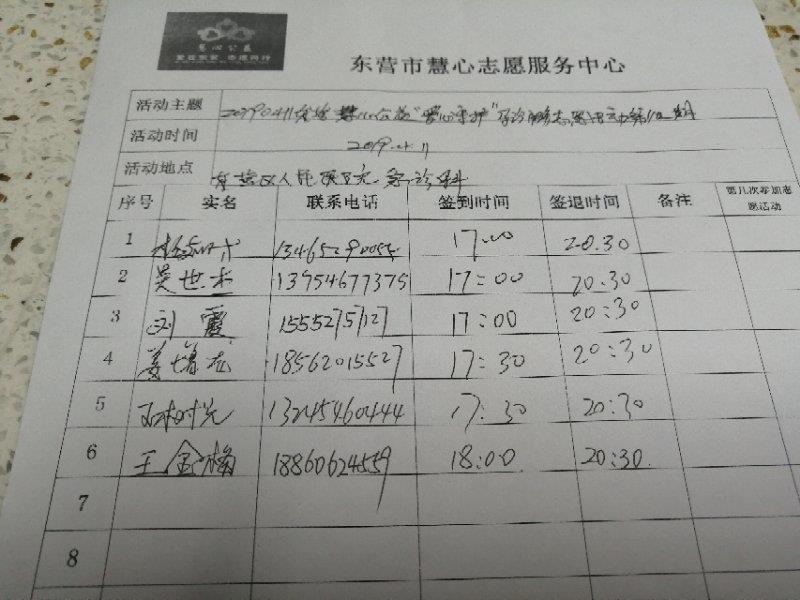 慧心公益
爱在东营 志愿同行
东营市慧心志愿服务中心
活动主题 20190411 慧心公益"爱心守护"
活动时间 2019.4.11
活动地点 东营区人民医院 急诊科
序号 实名 联系电话 签到时间 签退时间 备注 第几次参加志愿活动
1 17:00 20.30
2 吴世杰 13954677375 17:00 20:30
3 刘霞 15552757127 17:00 20:30
4 姜增花 18562015527 17:30 20:30
5 13245460444 17:30 20:30
6 王金梅 18860624559 18:00 20:30
7
8